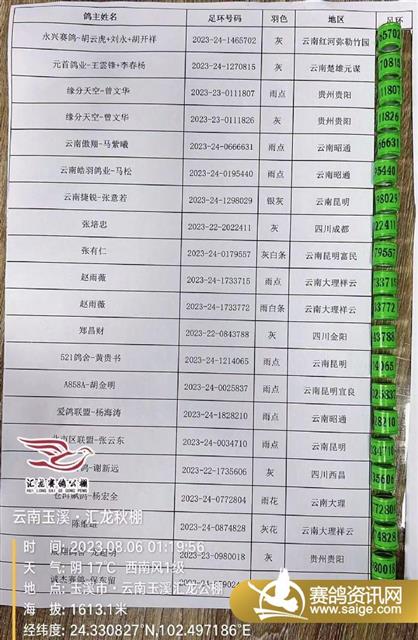 鸽主姓名 足环号码 羽色 地区 足环
永兴赛鸽-胡云虎+刘永+胡开祥 2023-24-1465702 灰 云南红河弥勒竹园 65702
元首鸽业-王雲锋+李春杨 2023-24-1270815 灰 云南楚雄元谋 7081
缘分天空-曾文华 2023-23-0111807 雨点 贵州贵阳 11807
缘分天空-曾文华 2023-23-0111826 灰 贵州贵阳 11826
云南傲翔-马紫曦 2023-24-0666631 雨点 云南昭通 66631
云南皓羽鸽业-马松 2023-24-0195440 雨点 云南昭通 95440
云南捷锐-张意若 2023-24-1298029 银灰 云南昆明 98029
张培忠 2023-22-2022411 灰 四川成都 22411
张有仁 2023-24-0179557 灰白条 云南昆明富民 79557
赵雨薇 2023-24-1733715 雨点 云南大理祥云 33715
赵雨薇 2023-24-1733772 雨白条 云南大理祥云 33772
郑昌财 2023-22-0843788 灰 四川金阳 43788
521鸽舍-黄贵书 2023-24-1214065 雨点 云南昆明 14065
A858A-胡金明 2023-24-0025837 雨点 云南昆明宜良 25837
爱鸽联盟-杨海涛 2023-24-1828210 雨点 云南昭通 28210
北市区联盟-张云东 2023-24-0034710 雨点 云南昆明 34710
鸽-谢新远 2023-22-1735606 灰 四川西昌 35606
沧海飙鸽-杨宏全 2023-24-0772804 雨花 云南大理 72804
陈维 2023-24-0874828 灰花 云南大理祥云 74828
2023-23-0980018 灰 贵州贵阳 80018
诚杰赛鸽-保东留
汇龙赛鸽公棚
HUI LONG SAI GE GONG PENG
云南玉溪·汇龙秋棚
时 间: 2023.08.06 01:19:56
天 气: 阴 17℃ 西南风1级
地 点: 玉溪市·云南玉溪汇龙公棚
海 拔: 1613.1米
经纬度: 24.330827°N,102.497186°E
赛鸽资讯网
www.saige.com